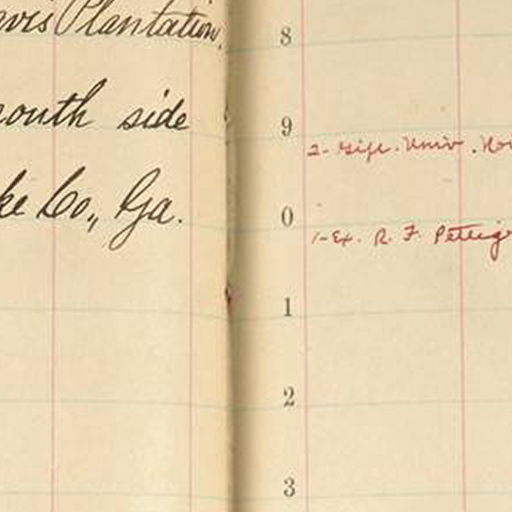 avis Plantation,
south side
ke Co., Ga.
8
9
2- Gift. Univ. No
0
1-Ex. R. F. Pettig
1
2
3